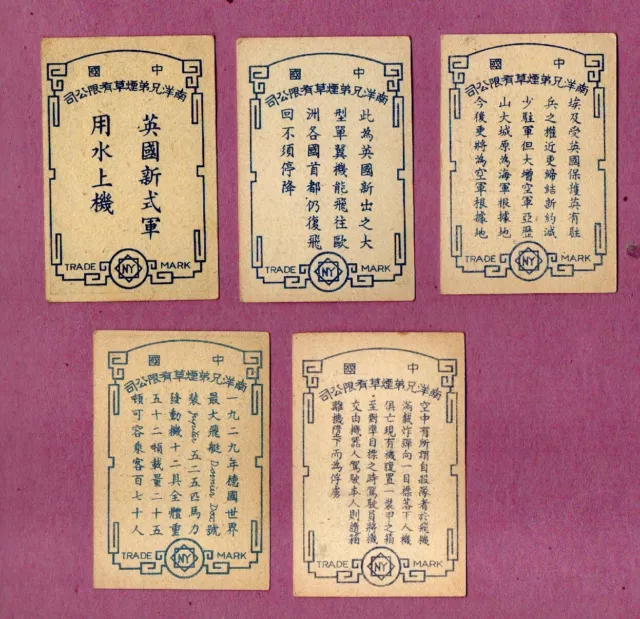 中國
南洋兄弟煙草有限公司
英國新式軍
用水上機
TRADE NY MARK
中國
南洋兄弟煙草有限公司
此為英國新出之大
型單翼機能飛往歐
洲各國首都仍復飛
回不須停降
TRADE NY MARK
中國
南洋兄弟煙草有限公司
埃及受英國保護英有駐
兵之權近更締結新約減
少駐軍但大增空軍亞歷
山大城原為海軍根據地
今後更將為空軍根據地
TRADE NY MARK
中國
南洋兄弟煙草有限公司
一九二九年德國世界
最大飛艇 Dornier Dox 號
裝 Jupiter 五二五匹馬力
發動機十二具全體重
五十二噸載量二十五
噸可容乘客百七十人
TRADE NY MARK
中國
南洋兄弟煙草有限公司
空中有所謂自殺隊者於飛機
滿載炸彈向一目標落下人機
俱亡現有機復置一裝甲之箱
至對準目標之時駕駛員將機
交由機器人駕駛本人則隨箱
離機墮下而為俘虜
TRADE NY MARK